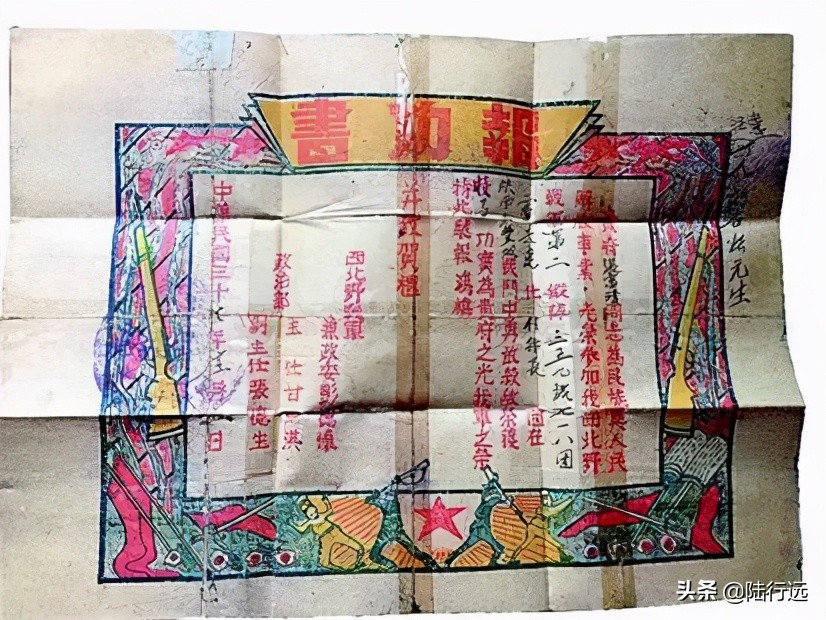 報功書
貴府張富清同志為民族與人民
解放事業，光榮參加我西北野
戰軍第二縱隊三五九旅七一八團
任 長 因在
戰鬥中勇敢殺敵榮獲
特等功實為貴府之光我軍之榮
特此馳報鴻禧
并致賀禧
西北野戰軍
兼政委彭德懷
政治部
主任甘泗淇
副主任張德生
中華民國三十七年 月 日
头条 @陆行远